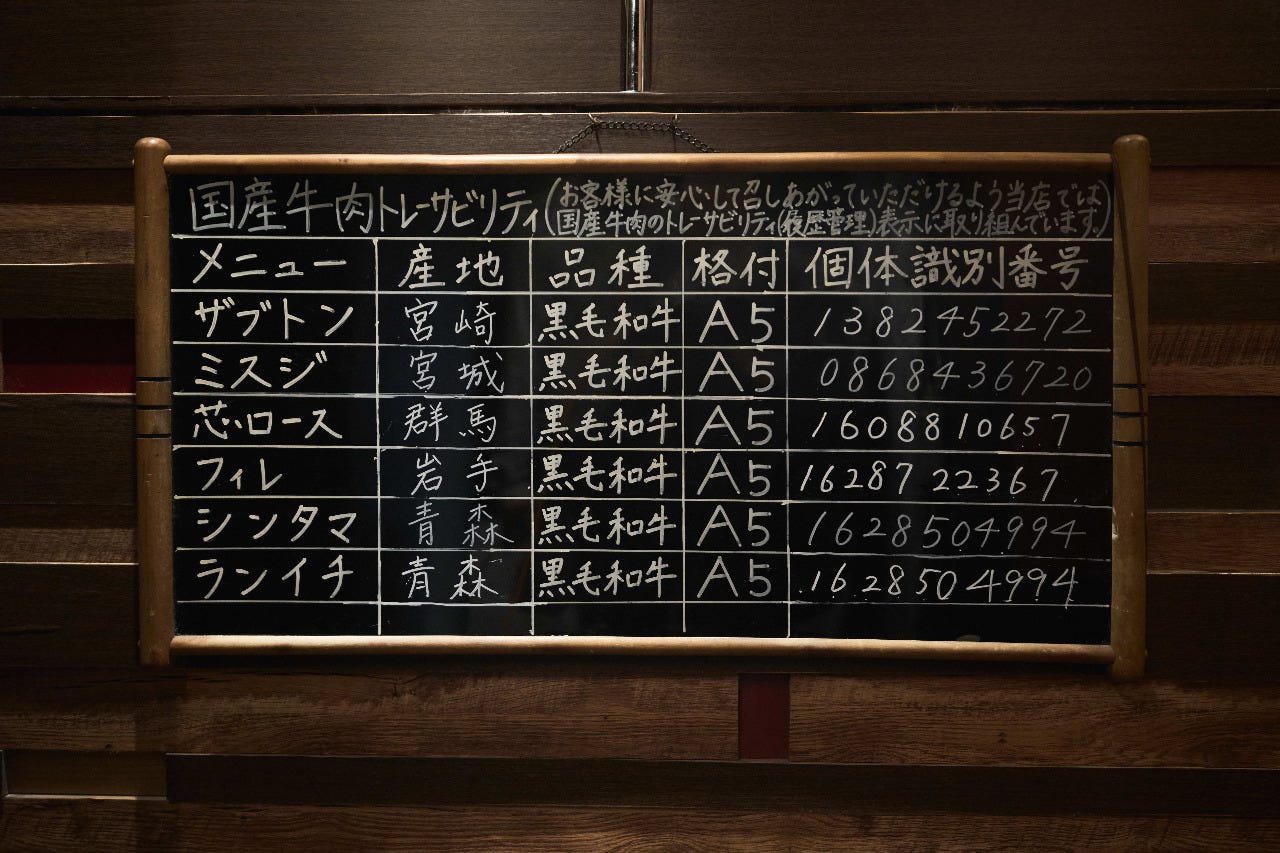 国産牛肉トレーサビリティ(お客様に安心して召しあがっていただけるよう当店では
国産牛肉のトレーサビリティ(履歴管理)表示に取り組んでいます。)
メニュー 産地 品種 格付 個体識別番号
ザブトン 宮崎 黒毛和牛 A5 1382452272
ミスジ 宮城 黒毛和牛 A5 0868436720
芯・ロース 群馬 黒毛和牛 A5 1608810657
フィレ 岩手 黒毛和牛 A5 1628722367
シンタマ 青森 黒毛和牛 A5 1628504994
ランイチ 青森 黒毛和牛 A5 1628504994